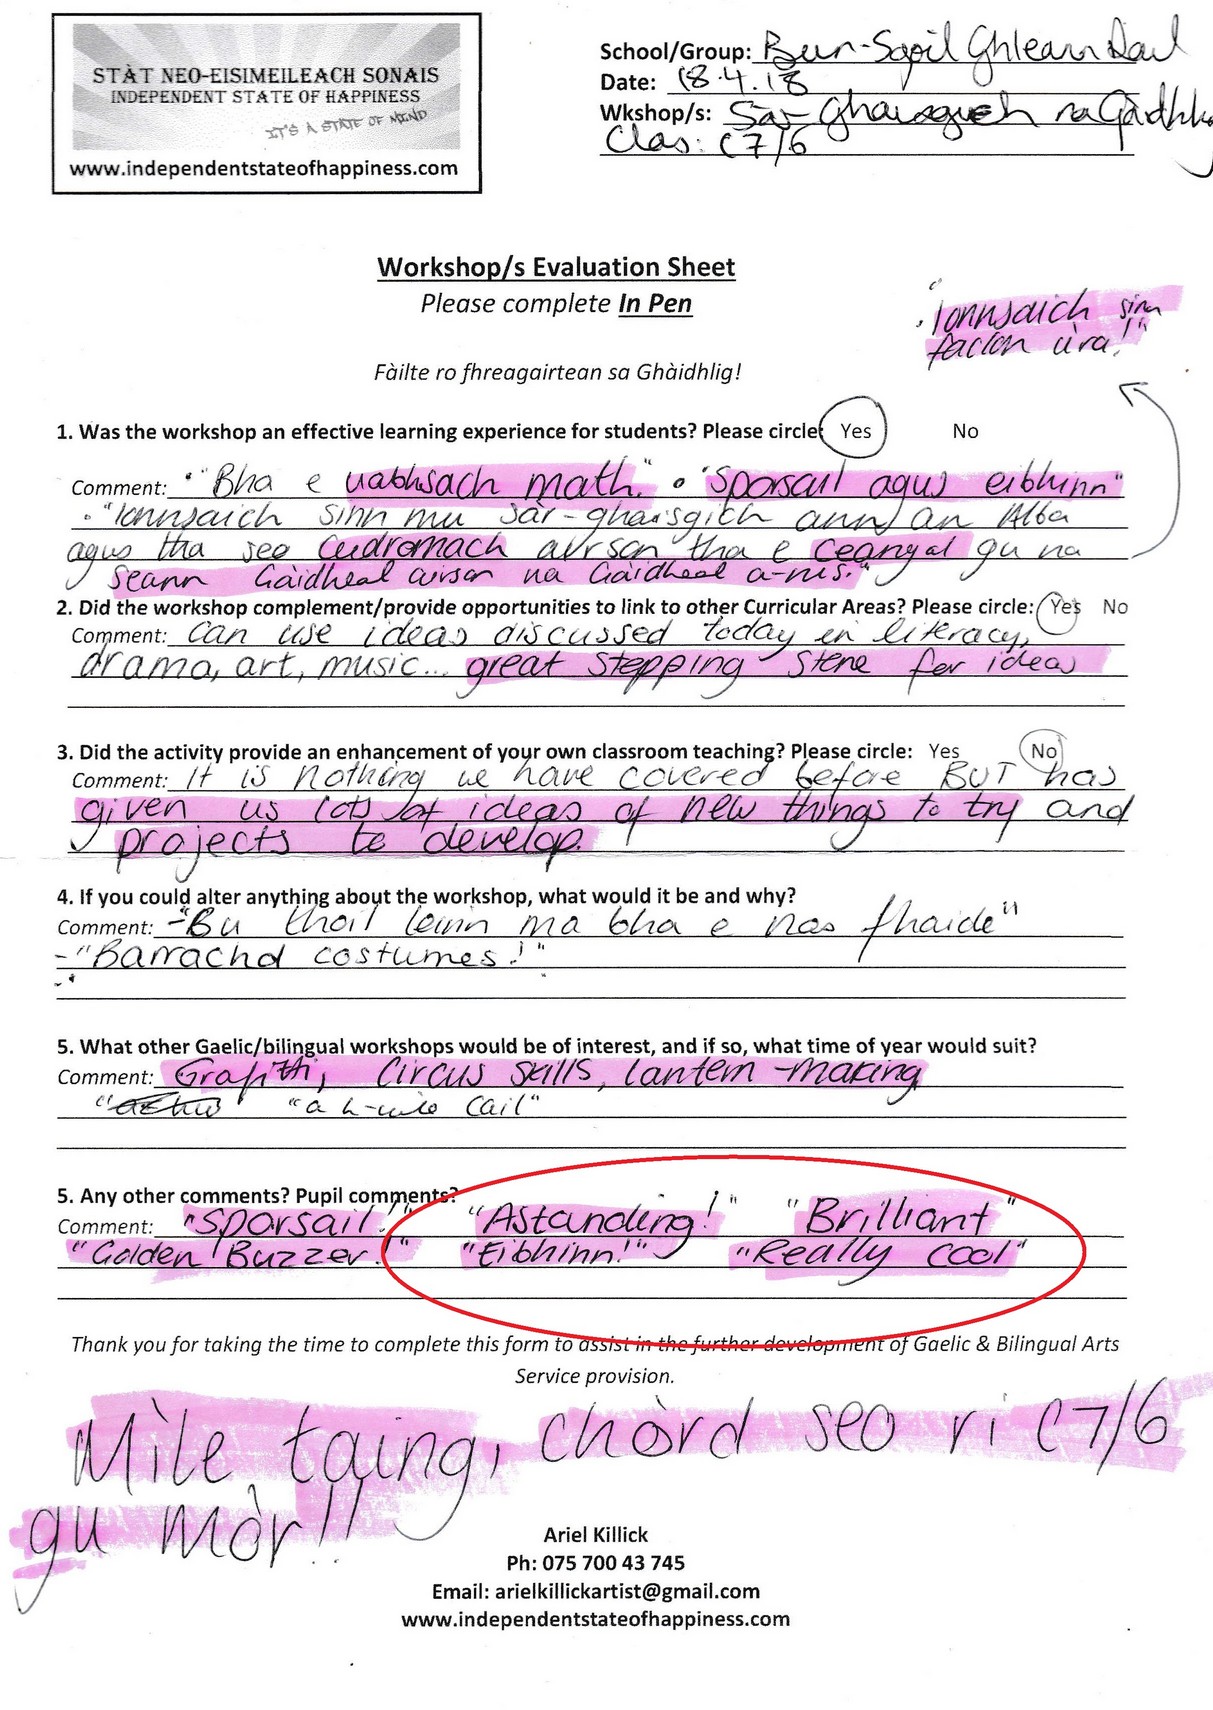 STÀT NEO-EISIMEILEACH SONAIS
INDEPENDENT STATE OF HAPPINESS
IT'S A STATE OF MIND
www.independentstateofhappiness.com
School/Group: Bun-Sgoil Ghleann Dail
Date: 18.4.18
Wkshop/s: Sàr-Ghaisgich na Gàidhlig
Clas: C7/6
Workshop/s Evaluation Sheet
Please complete In Pen
"Ionnsaich sinn
faclan ùra!"
Fàilte ro fhreagairtean sa Ghàidhlig!
1. Was the workshop an effective learning experience for students? Please circle: Yes No
Comment: • "Bha e uabhsach math." • "Sporsail agus eibhinn"
• "Ionnsaich sinn mu sàr-ghaisgich ann an Alba
agus tha seo cudromach airson tha e ceangal gu na
seann Gàidheal airson na Gàidheal a-nis."
2. Did the workshop complement/provide opportunities to link to other Curricular Areas? Please circle: Yes No
Comment: Can use ideas discussed today in literacy,
drama, art, music... great stepping stone for ideas
3. Did the activity provide an enhancement of your own classroom teaching? Please circle: Yes No
Comment: It is nothing we have covered before BUT has
given us lots of ideas of new things to try and
projects to develop.
4. If you could alter anything about the workshop, what would it be and why?
Comment: - "Bu thoil leinn ma bha e nas fhaide"
- "Barrachd costumes!"
5. What other Gaelic/bilingual workshops would be of interest, and if so, what time of year would suit?
Comment: Grafitti, Circus skills, lantern-making
"a h-uile cail"
5. Any other comments? Pupil comments?
Comment: "Sporsail!" "Astanding!" "Brilliant"
"Golden Buzzer!" "Eibhinn!" "Really cool"
Thank you for taking the time to complete this form to assist in the further development of Gaelic & Bilingual Arts
Service provision.
Mìle taing, chòrd seo ri C7/6
gu mòr!!
Ariel Killick
Ph: 075 700 43 745
Email: arielkillickartist@gmail.com
www.independentstateofhappiness.com